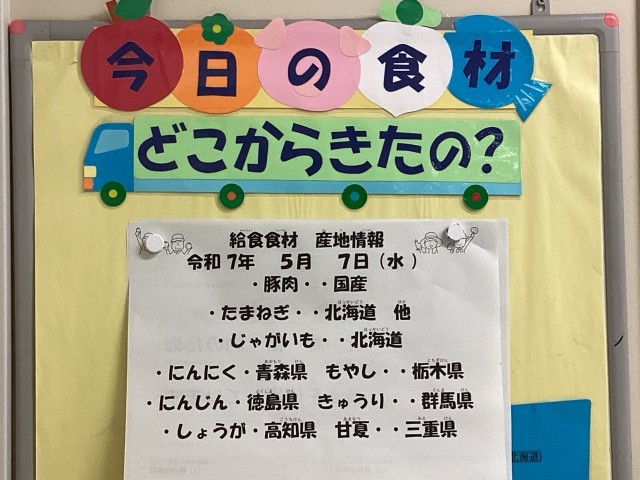 今日の食材
どこからきたの?
給食食材 産地情報
令和7年 5月 7日(水)
・豚肉・・国産
・たまねぎ・・北海道 他
・じゃがいも・・北海道
・にんにく・青森県 もやし・・栃木県
・にんじん・徳島県 きゅうり・・群馬県
・しょうが・高知県 甘夏・・三重県
北海道